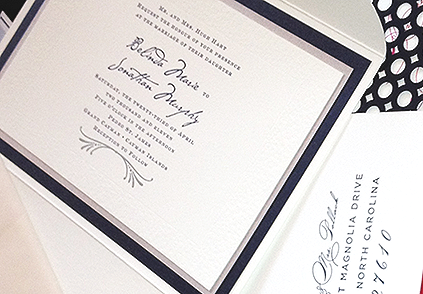 Mr. and Mrs. Hugh Hart
Request the honour of your presence
at the marriage of their daughter
Belinda Marie
to
Jonathan Murphy
Saturday, the twenty-third of April
Two thousand and eleven
Five o'clock in the afternoon
Pedro St. James
Grand Cayman • Cayman Islands
Reception to Follow
& Mrs. Pollock
t Magnolia Drive
North Carolina
27610